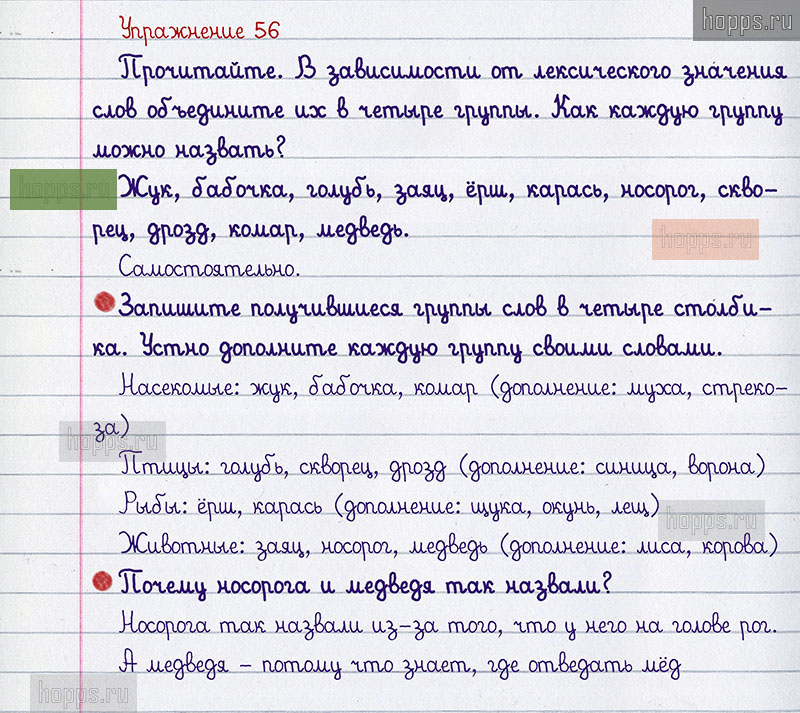 hopps.ru
Упражнение 56
Прочитайте. В зависимости от лексического значения
слов объедините их в четыре группы. Как каждую группу
можно назвать?
hopps.ru
Жук, бабочка, голубь, заяц, ёрш, карась, носорог, скво-
рец, дрозд, комар, медведь.
hopps.ru
Самостоятельно.
Запишите получившиеся группы слов в четыре столби-
ка. Устно дополните каждую группу своими словами.
Насекомые: жук, бабочка, комар (дополнение: муха, стреко-
за)
hopps.ru
Птицы: голубь, скворец, дрозд (дополнение: синица, ворона)
Рыбы: ёрш, карась (дополнение: щука, окунь, лещ)
hopps.ru
Животные: заяц, носорог, медведь (дополнение: лиса, корова)
Почему носорога и медведя так назвали?
Носорога так назвали из-за того, что у него на голове рог.
А медведя – потому что знает, где отведать мёд
hopps.ru